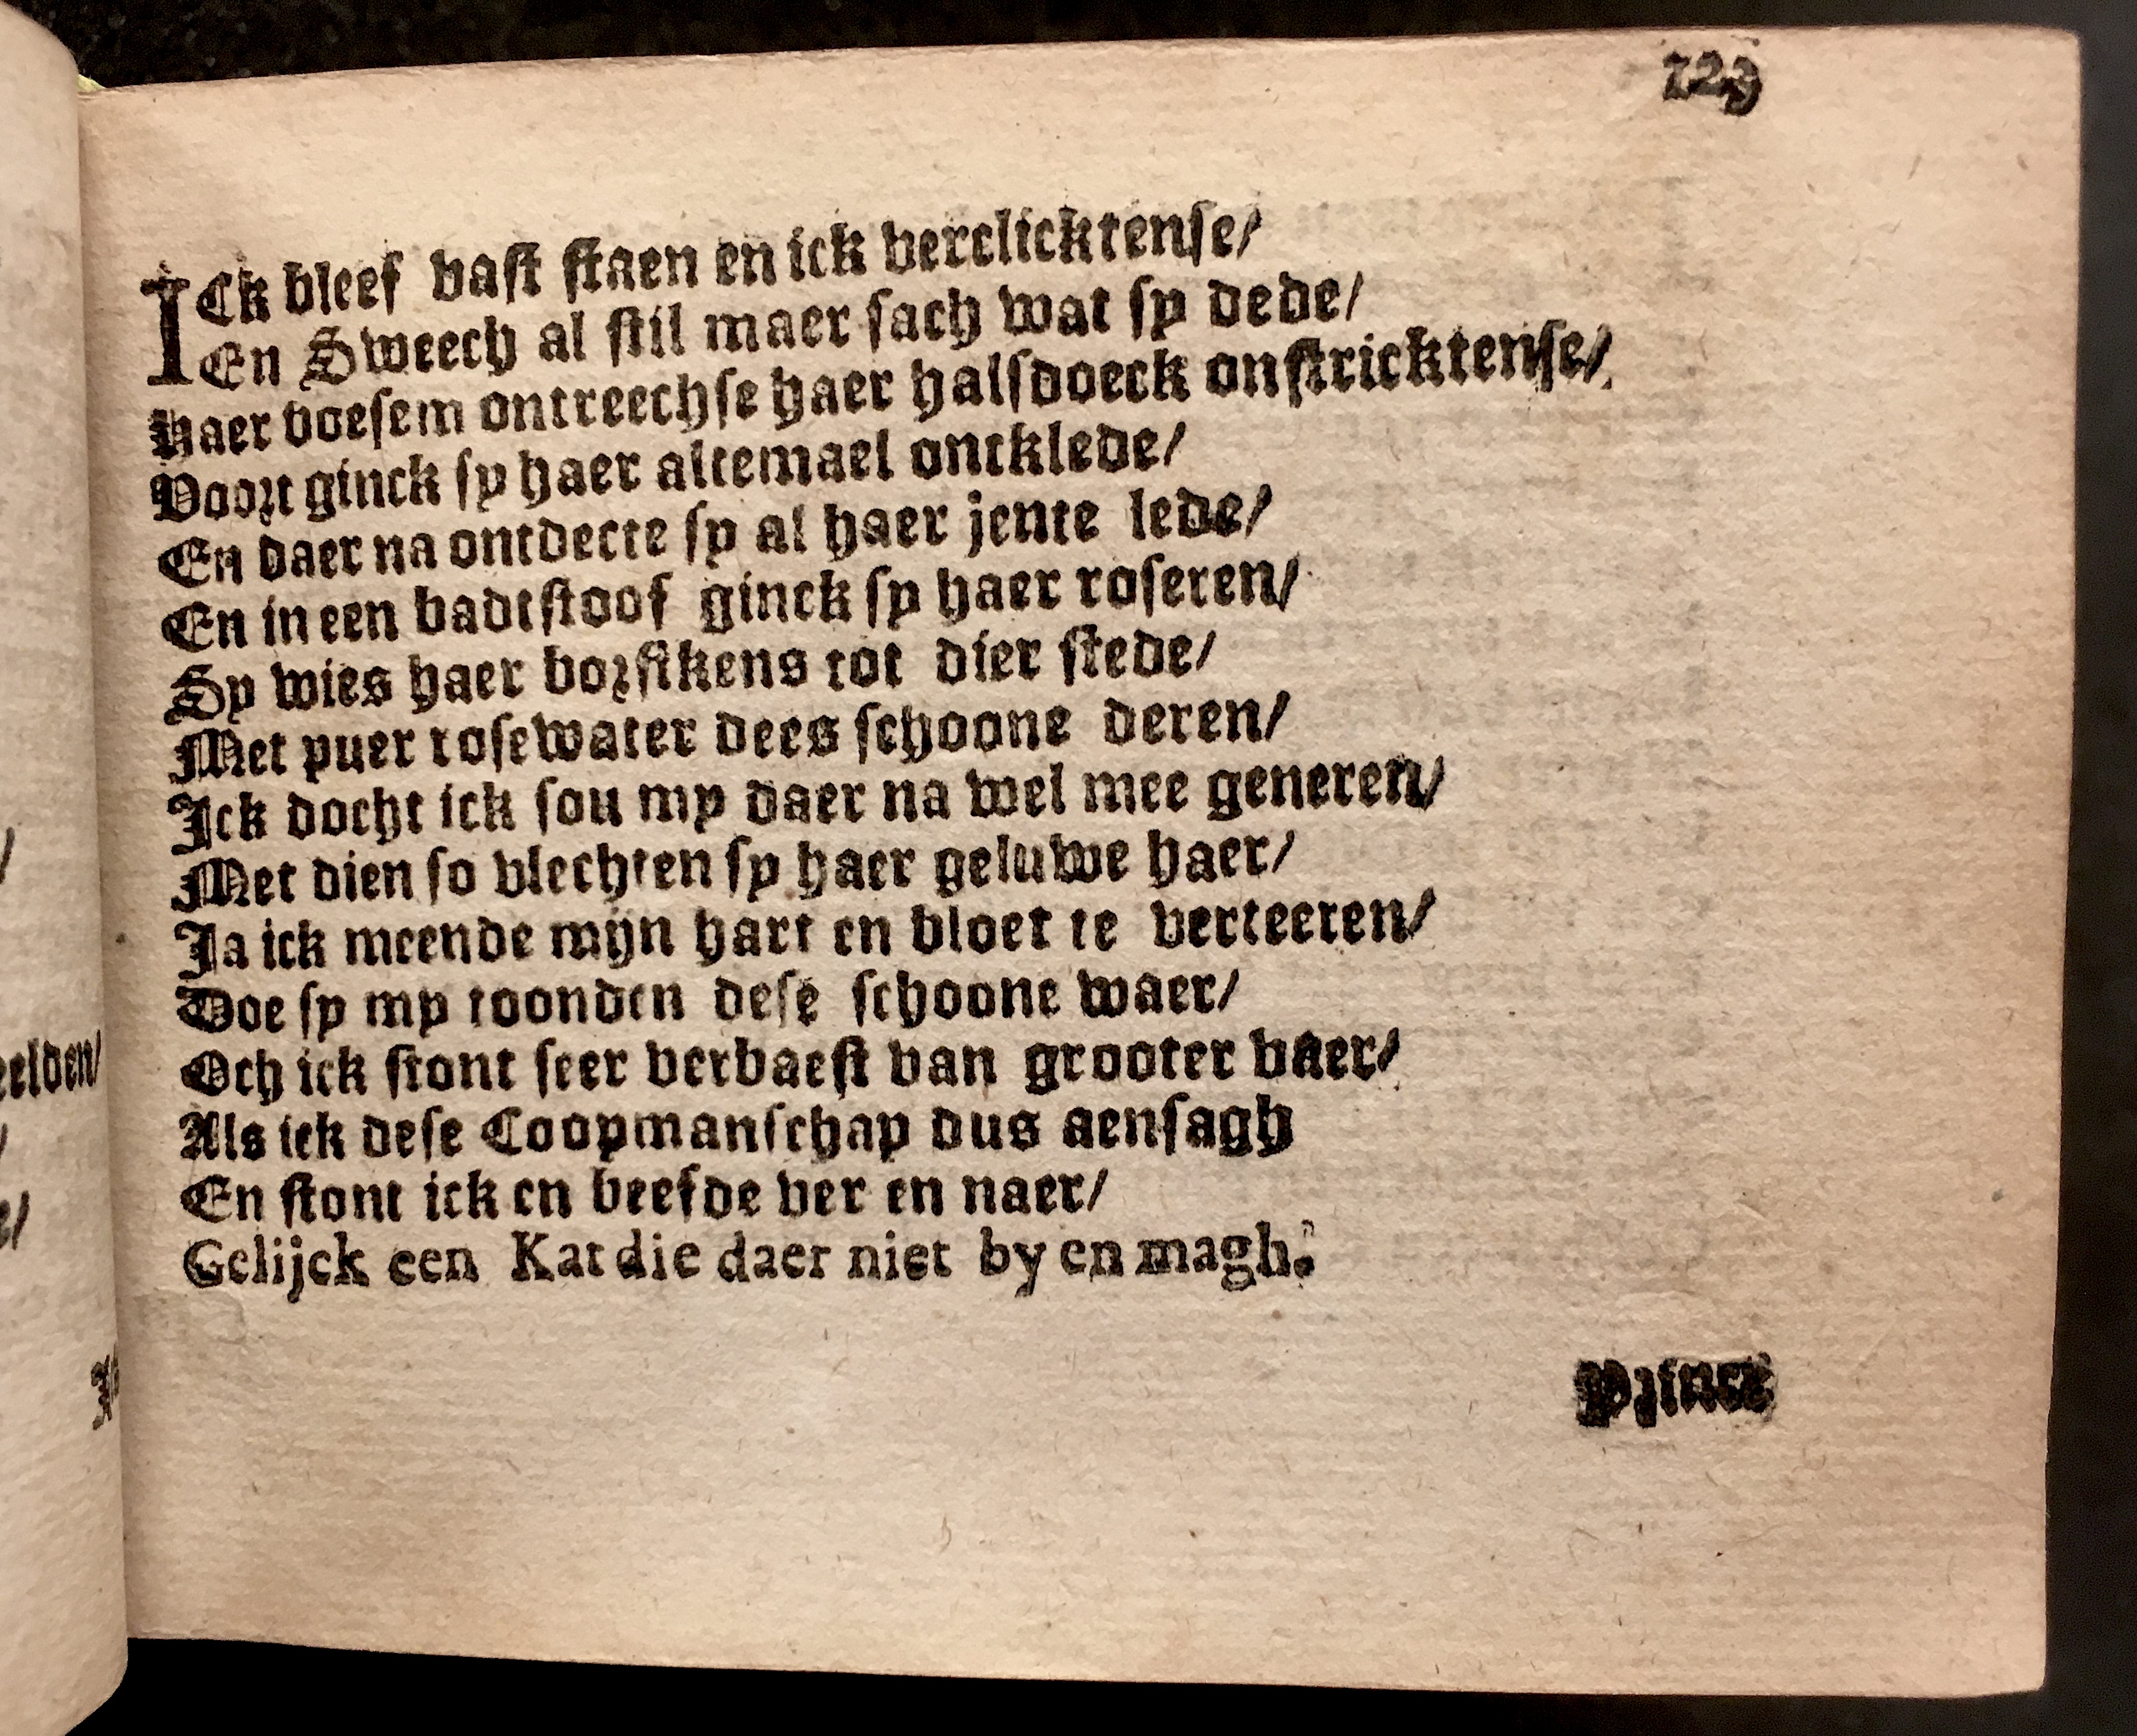 129
ICk bleef vast staen en ick verclicktense/
En Sweech al stil maer sach wat sy dede/
Haer boesem ontreechse haer halsdoeck onstricktense/
Voort ginck sy haer altemael ontklede/
En daer na ontdecte sy al haer jente lede/
En in een badtstoof ginck sy haer roseren/
Sy wies haer borstkens tot dier stede/
Met puer rosewater dees schoone deren/
Ick docht ick sou my daer na wel mee generen/
Met dien so vlechten sy haer geluwe haer/
Ja ick meende mijn hart en bloet te verteeren/
Doe sy my toonden dese schoone waer/
Och ick stont seer verbaest van grooter vaer/
Als ick dese Coopmanschap dus aensagh
En stont ick en beefde ver en naer/
Gelijck een Kat die daer niet by en magh.
Prince
eelden/